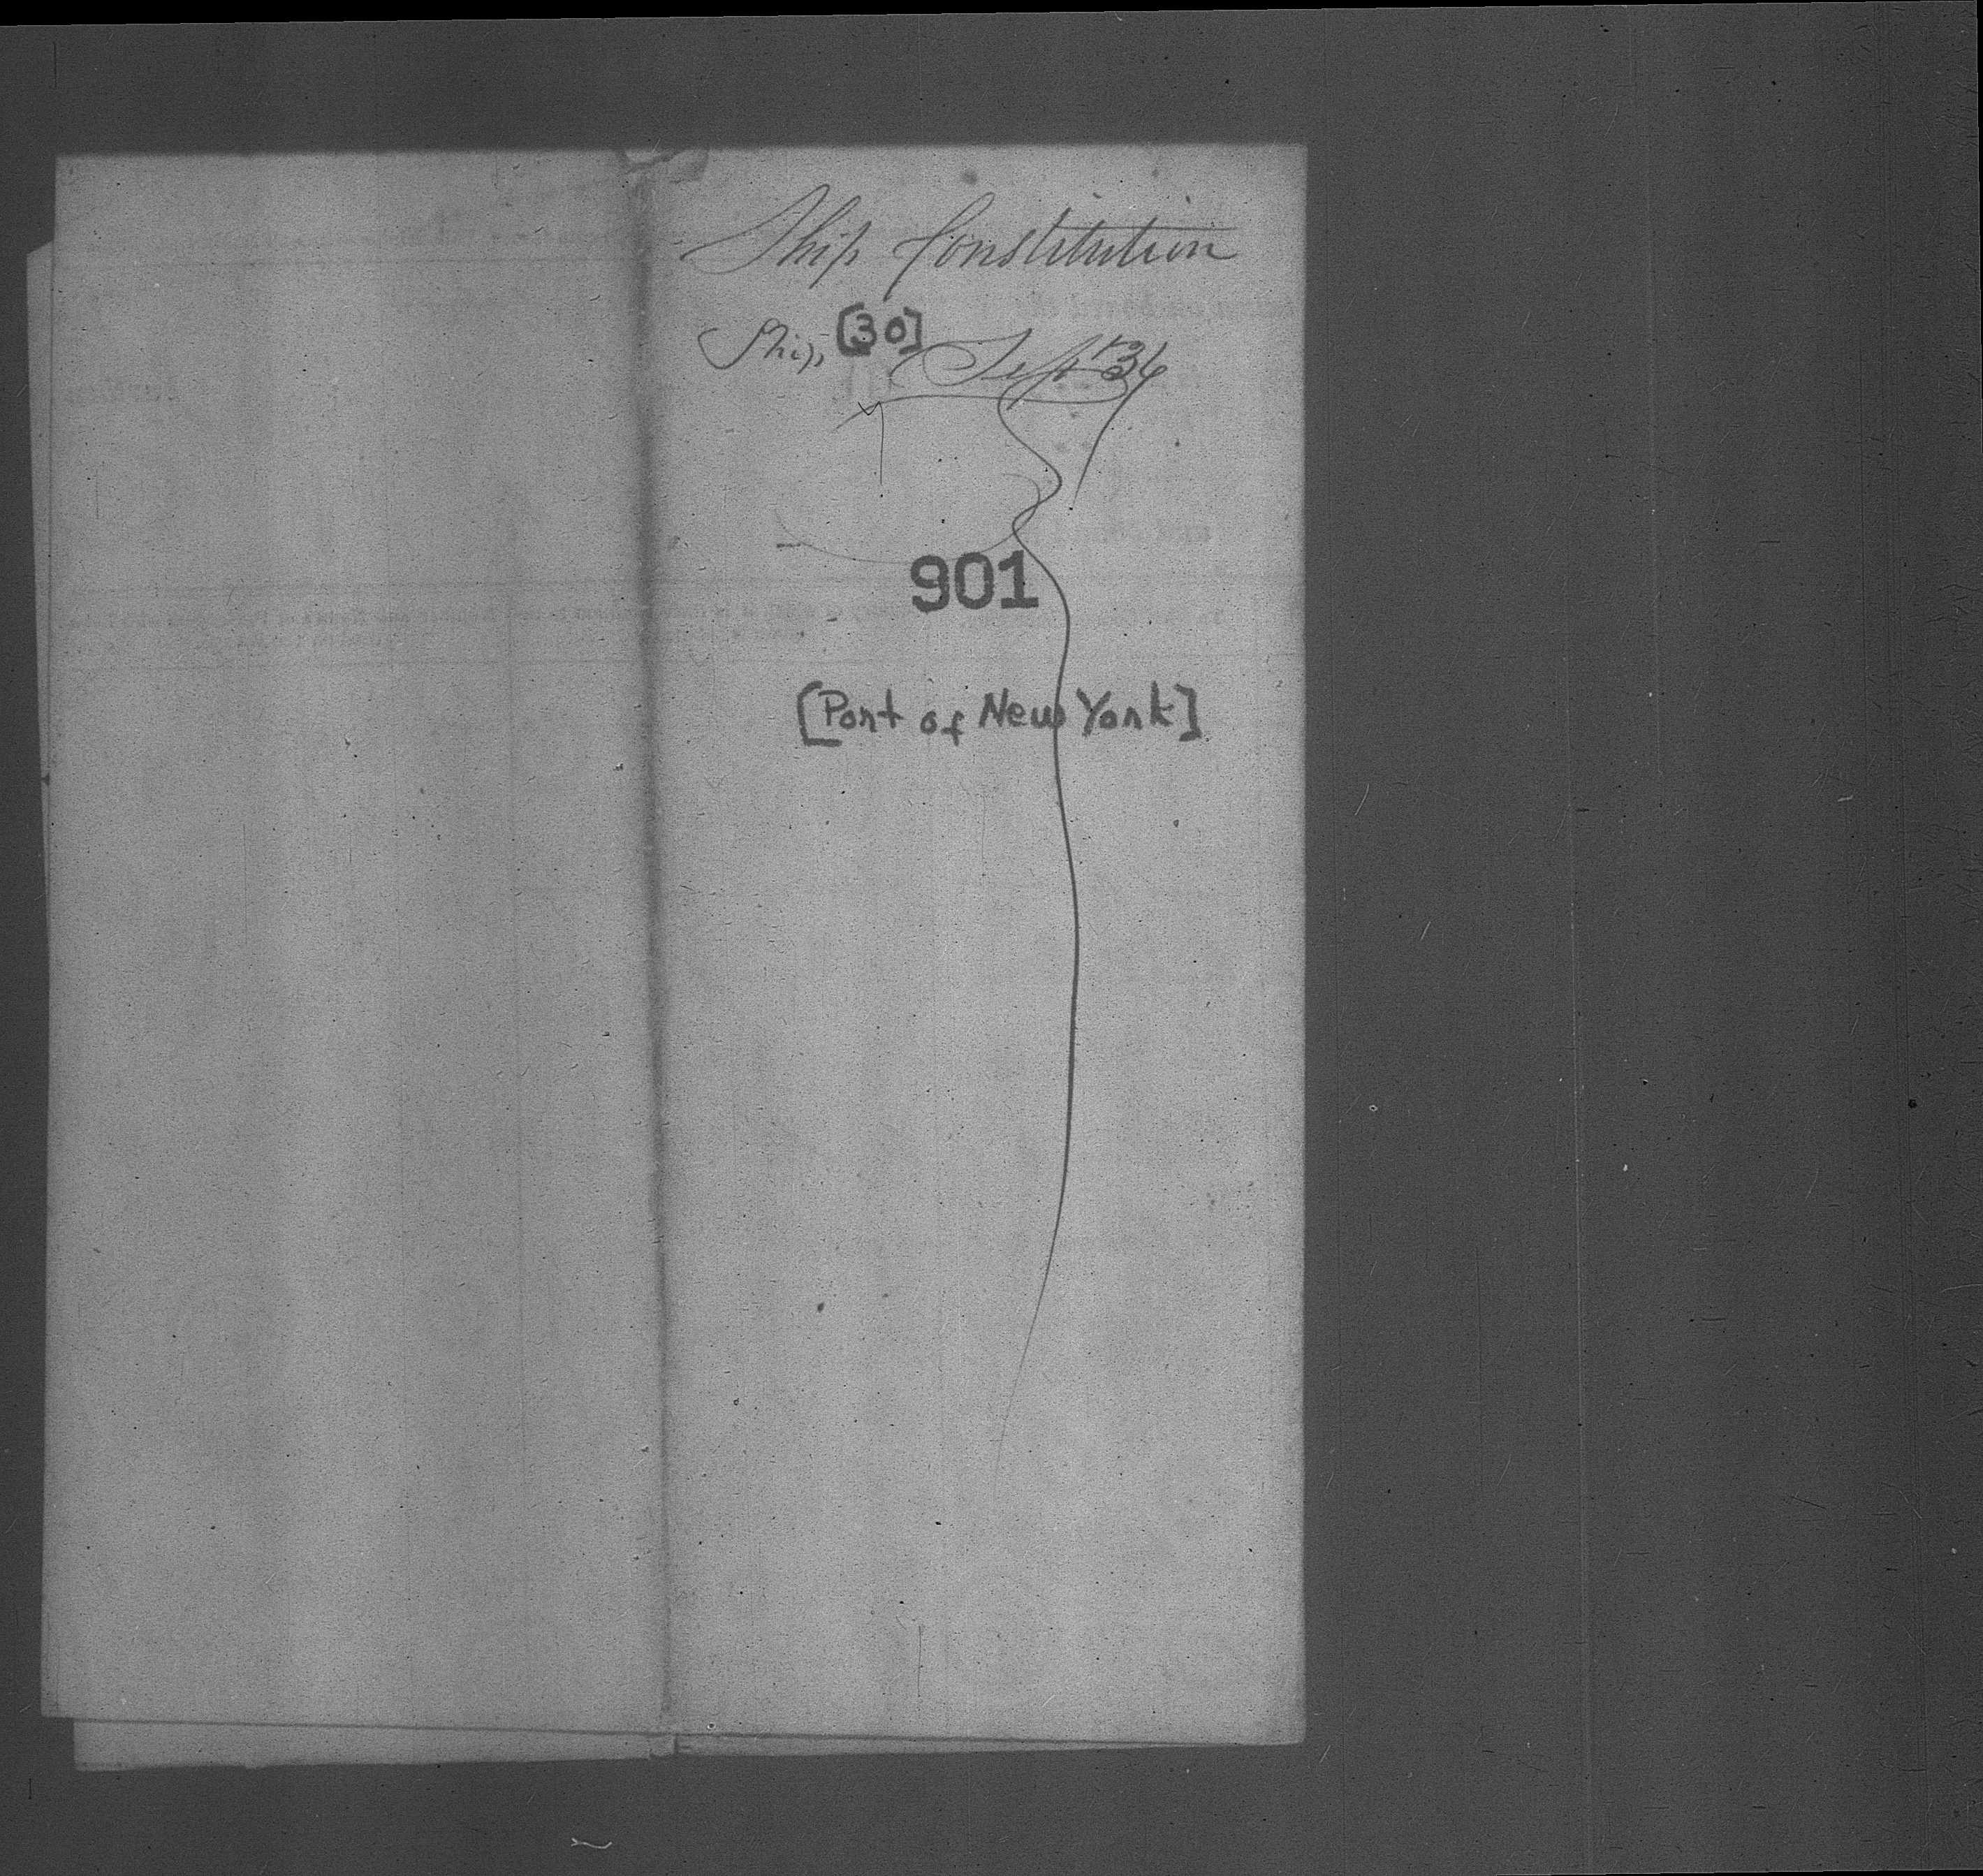 Ship Constitution
Ship [30] Sept 36
901
[Port of New York]